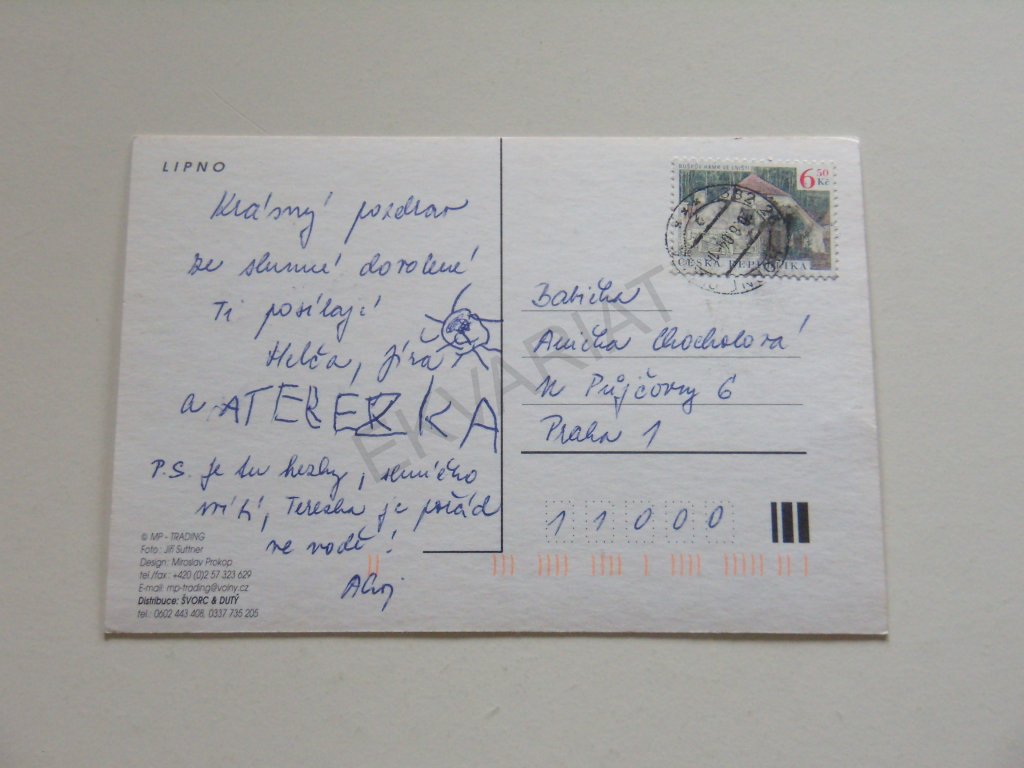 LIPNO
Krásný pozdrav
ze slunné dovolené
Ti posílají
Helča, Jíra
a ATEREZKA
P.S. je tu hezky, sluníčko
svítí, Terezka je pořád
ve vodě!
Ahoj
© MP - TRADING
Foto: Jiří Suttner
Design: Miroslav Prokop
tel./fax: +420 (0)2 57 323 629
E-mail: mp-trading@volny.cz
Distribuce: ŠVORC & DUTÝ
tel.: 0602 443 408, 0337 735 205
6 50 Kč
ČESKÁ REPUBLIKA
382 2
Babička
Anička Chocholová
K Půjčovny 6
Praha 1
11000
EKVARIAT